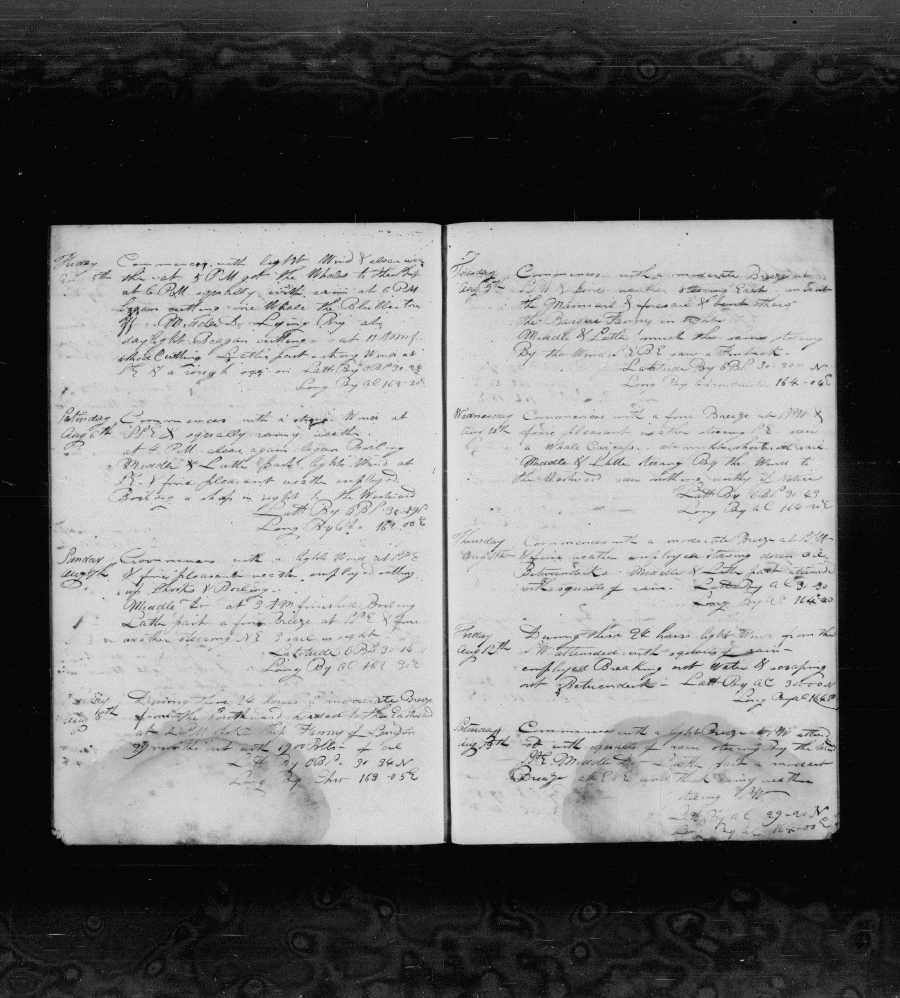 Friday Commences with light Wind & clear
5th at 5 PM got the Whales to the Ship
at 6 PM squally with rain at 6 PM
began cutting one Whale the Blubber
off Middle Do Lying By at
daylight Began cutting at 11 AM
Cutting Latter part strong Wind at
a rough Latt By OBs 30-28
Long By AC 162-30
Saturday Commences with a strong Wind at
Aug 6th SSE & squally rainy weather
at 4 PM clear again began Boiling
Middle & Latter part light Wind at
SE & fine pleasant weather employed
Boiling a ship in sight to the Westward
Latt By OBs 30-19 N
Long By Ch. 162-00 E
Sunday Commences with a light Wind at SSE
Aug 7th & fine pleasant weather employed setting
up Shooks & Boiling
Middle Do at 3 AM finished Boiling
Latter part a fine Breeze at SSE & fine
weather steering NE 2 sail in sight
Latitude OBs 30-14 N
Long By AC 162 32 E
During these 24 hours a moderate Breeze
Aug 8th from the Southward headed to the Eastward
at 2 PM spoke Ship Fanny of
months out with 1900 Bbls of oil
Latt By OBs 30 34 N
Long By Chro 163-05 E
Tuesday Commences with a moderate Breeze at
Aug 9th SW & fine weather steering East
the Mainsail & foresail & bent others
the Barque Fanny in sight
Middle & Latter much the same steering
By the Wind SEBE saw a Finback
Latitude By OBs 30-20 N
Long By Chronometer 164-04 E
Wednesday Commences with a fine Breeze at SSW &
Aug 10th fine pleasant weather steering SE saw
a Whale Carcass shortened sail
Middle & Latter steering By the Wind to
the Westward saw nothing worthy of notice
Latt By OBs 30 43
Long By AC 164-20 E
Thursday Commences with a moderate Breeze at SSW
Aug 11th & fine weather employed stowing down oil
Betweendecks Middle & Latter part attended
with squalls of rain Latt By AC 30-30
Long By AC 164-40
Friday During these 24 hours light Wind from the
Aug 12th SW attended with squalls of rain
employed Breaking out Water & scraping
out Betweendeck Latt By AC 30-00 N
Long By AC 164
Saturday Commences with a light Breeze at SW attend
Aug 13th ed with squalls of rain steering By the Wind
SSE Middle Do Latter part a moderate
Breeze at ESE and thick rainy weather
steering SSW
Latt By AC 29-20 N
Long By AC 164-00 E